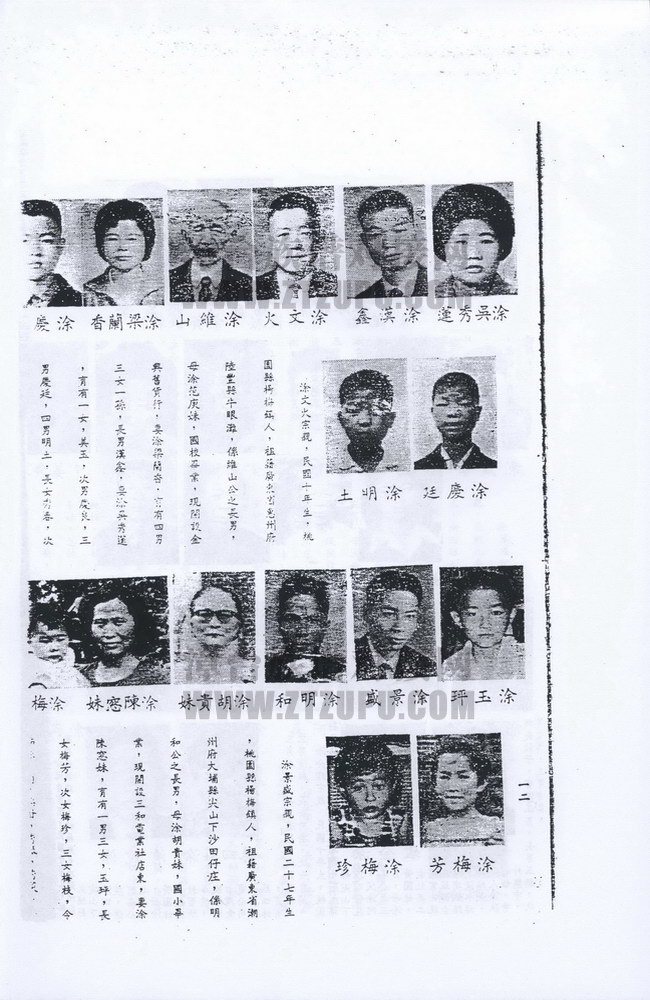 涂吳秀蓮
涂漢鑫
涂文火
涂維山
涂梁蘭香
涂慶
涂慶廷
涂明土
涂文火宗親，民國十年生，桃
園縣楊梅鎮人，祖籍廣東省惠州府
陸豐縣牛眼灘，係維山公之長男，
母涂范庚妹，國校畢業，現開設金
興舊貨行，妻涂梁蘭香，育有四男
三女一孫，長男漢鑫，妻涂吳秀蓮
，育有一女，美玉，次男慶良，三
男慶廷，四男明土，長女秀春，次
涂玉坪
涂景盛
涂明和
涂胡貴妹
涂陳窓妹
涂梅
涂梅芳
涂梅珍
涂景盛宗親，民國二十七年生
，桃園縣楊梅鎮人，祖籍廣東省潮
州府大埔縣尖山下沙田仔庄，係明
和公之長男，母涂胡貴妹，國小畢
業，現開設三和電業社店東，妻涂
陳窓妹，育有一男三女，玉坪，長
女梅芳，次女梅珍，三女梅枝，令
一二
WWW.ZYZUPU.COM
WWW.ZYZUPU.COM